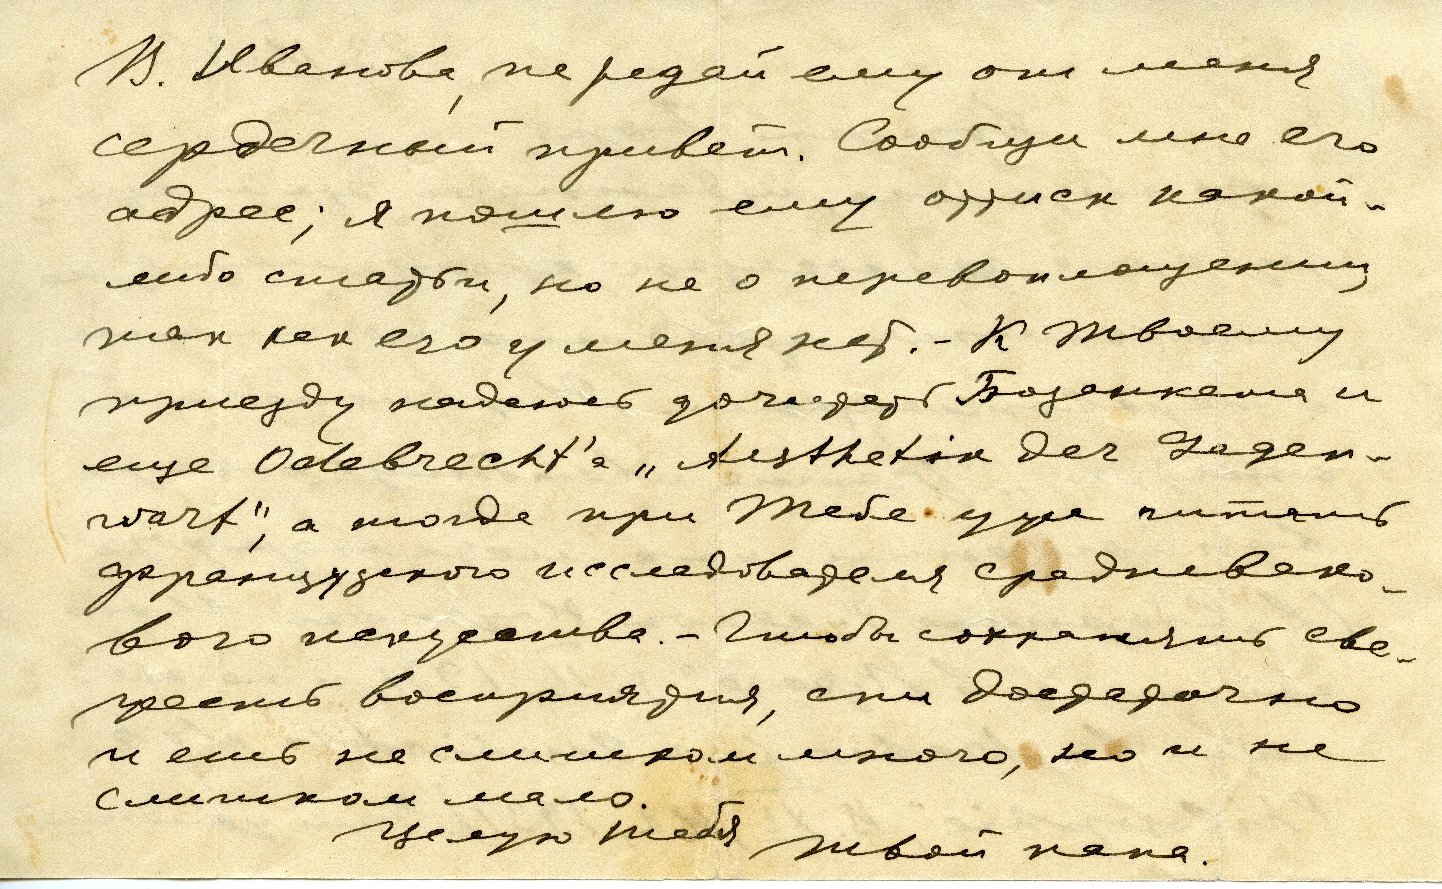 В. Иванова, передай ему от меня
сердечный привет. Сообщи мне его
адрес; я пошлю ему оттиск какой-
либо статьи, но не о перевоплощении,
так как его у меня нет. – К Твоему
приезду надеюсь дочитать Бозанкета и
еще Odebrecht'a „Aesthetik der Gegen-
wart", а тогда при Тебе уже читать
французского исследователя средневеко-
вого искусства. – Чтобы сохранить све-
жесть восприятия, спи достаточно
и ешь не слишком много, но и не
слишком мало.
Целую тебя
твой папа.